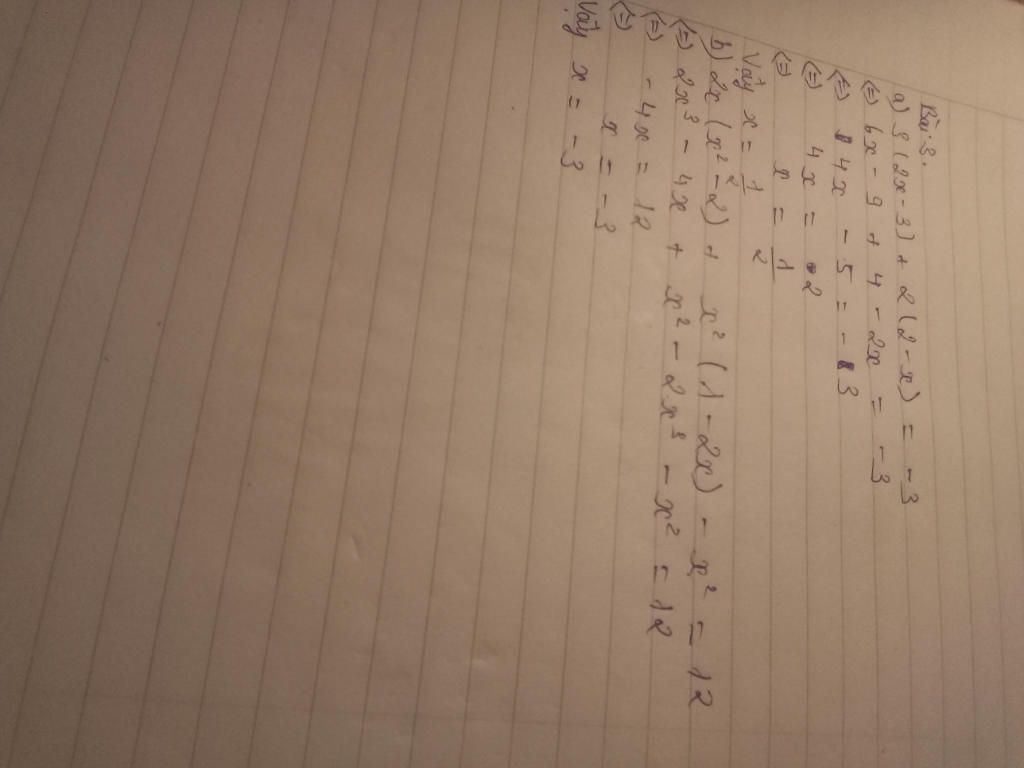 Bài 3.
a) 3(2x-3)+2(2-x) = -3
(=) 6x - 9 + 4 - 2x = -3
(=) 4x - 5 = -3
(=) 4x = 2
(=) x = 1/2
Vậy x = 1/2
b) 2x(x²-2) + x²(1-2x) - x² = 12
(=) 2x³ - 4x + x² - 2x³ - x² = 12
(=) - 4x = 12
(=) x = -3
Vậy x = -3